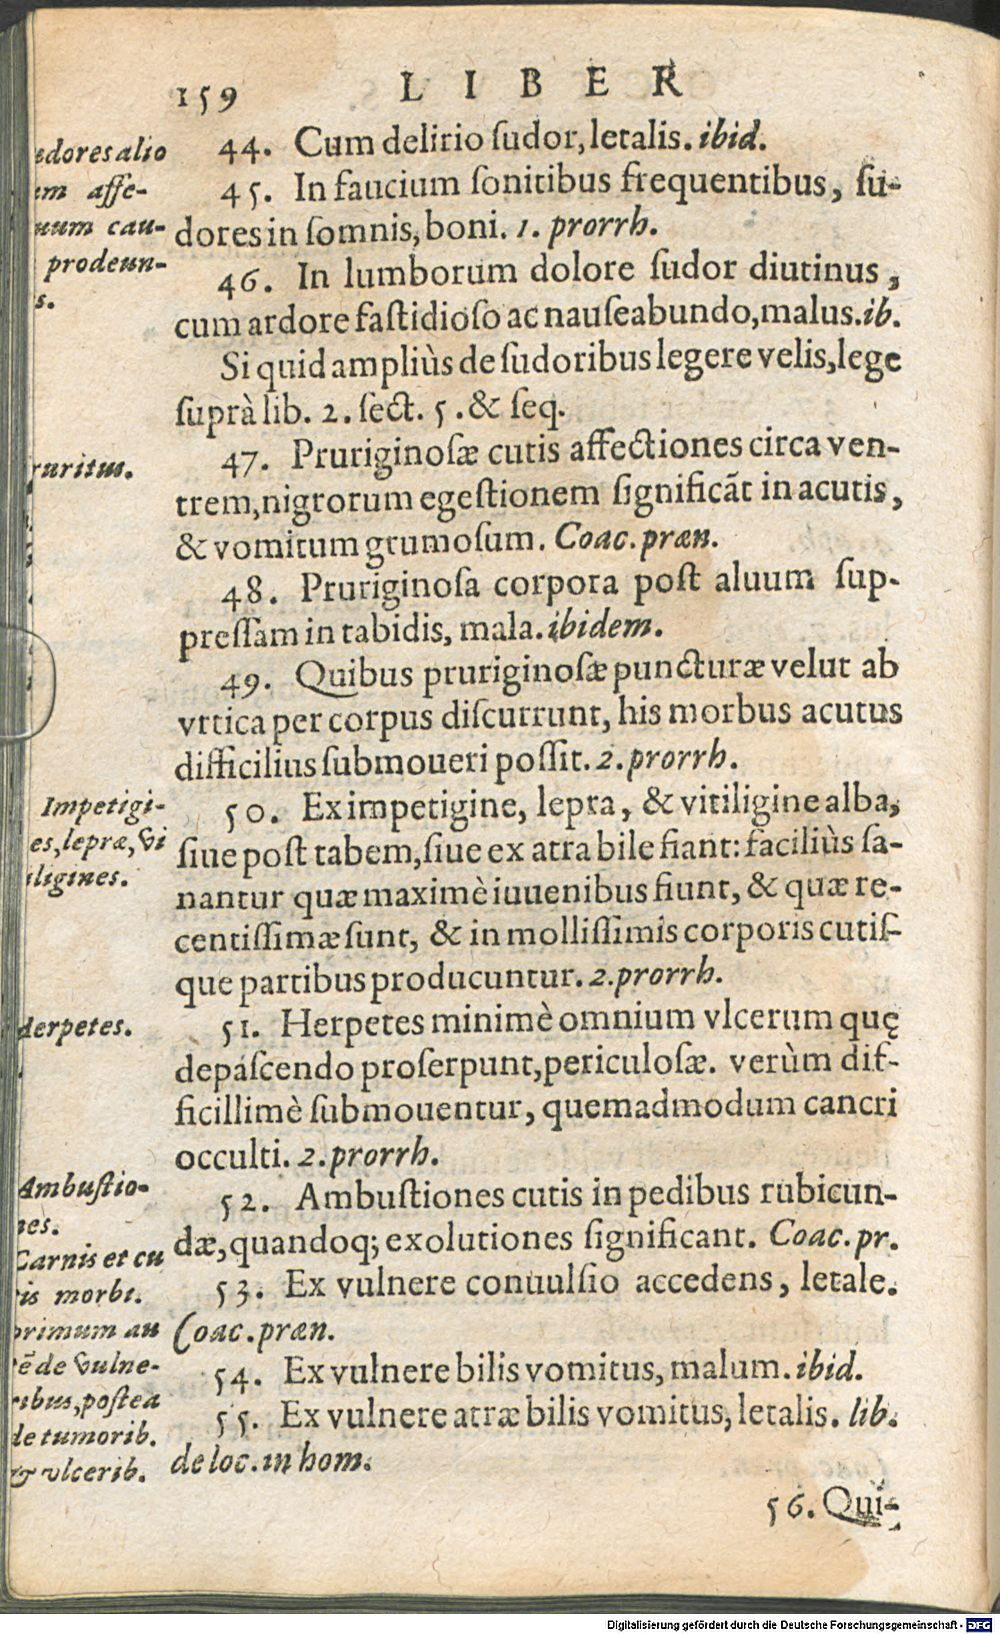 159 LIBER
44. Cum delirio ſudor, letalis. ibid.
45. In faucium ſonitibus frequentibus, ſu-
dores in ſomnis, boni. 1. prorrh.
46. In lumborum dolore ſudor diutinus,
cum ardore faſtidioſo ac nauſeabundo, malus. ib.
Si quid ampliùs de ſudoribus legere velis, lege
ſuprà lib. 2. ſect. 5. & ſeq.
47. Pruriginoſæ cutis affectiones circa ven-
trem, nigrorum egeſtionem ſignificãt in acutis,
& vomitum grumoſum. Coac. præn.
48. Pruriginoſa corpora poſt aluum ſup-
preſſam in tabidis, mala. ibidem.
49. Quibus pruriginoſæ puncturæ velut ab
vrtica per corpus diſcurrunt, his morbus acutus
difficilius ſubmoueri poſſit. 2. prorrh.
50. Ex impetigine, lepra, & vitiligine alba,
ſiue poſt tabem, ſiue ex atra bile fiant: faciliùs ſa-
nantur quæ maximè iuuenibus fiunt, & quæ re-
centiſſimæ ſunt, & in molliſſimis corporis cutiſ-
que partibus producuntur. 2. prorrh.
51. Herpetes minimè omnium vlcerum quę
depaſcendo proſerpunt, periculoſæ. verùm dif-
ficillimè ſubmouentur, quemadmodum cancri
occulti. 2. prorrh.
52. Ambuſtiones cutis in pedibus rubicun-
dæ, quandoq; exolutiones ſignificant. Coac. pr.
53. Ex vulnere conuulſio accedens, letale.
Coac. præn.
54. Ex vulnere bilis vomitus, malum. ibid.
55. Ex vulnere atræ bilis vomitus, letalis. lib.
de loc. in hom.
56. Qui-
alio
affe-
cau-
prodeun-
s.
ruritus.
Impetigi-
es, lepræ, vi
iligines.
Herpetes.
Ambuſtio-
nes.
Carnis et cu
tis morbi.
primum au
tẽ de vulne-
ribus, poſtea
de tumorib.
& vlcerib.
Digitalisierung gefördert durch die Deutsche Forschungsgemeinschaft - DFG